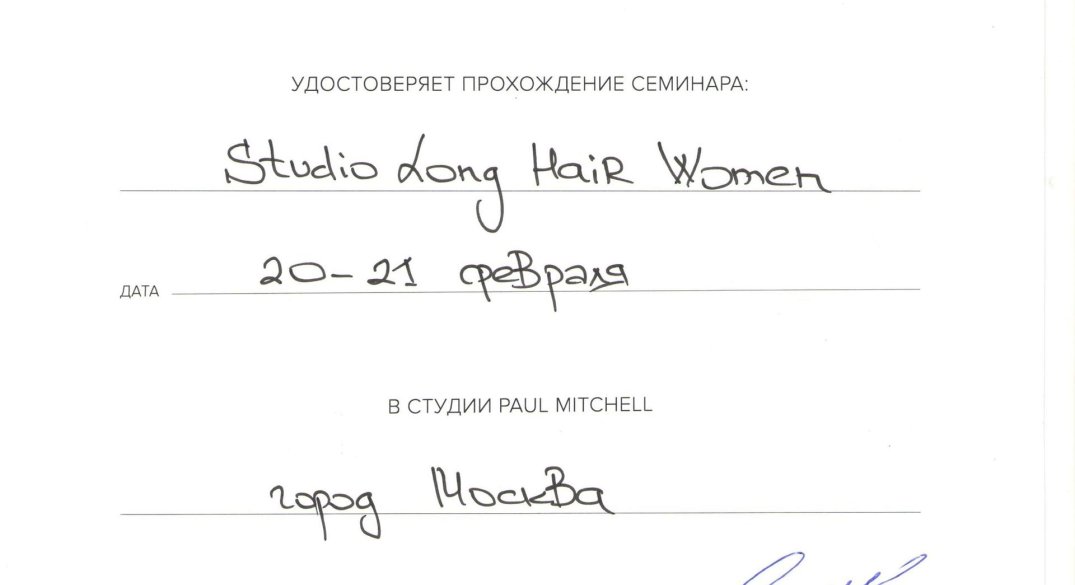 УДОСТОВЕРЯЕТ ПРОХОЖДЕНИЕ СЕМИНАРА:
Studio Long Hair Women
ДАТА 20-21 февраля
В СТУДИИ PAUL MITCHELL
город Москва